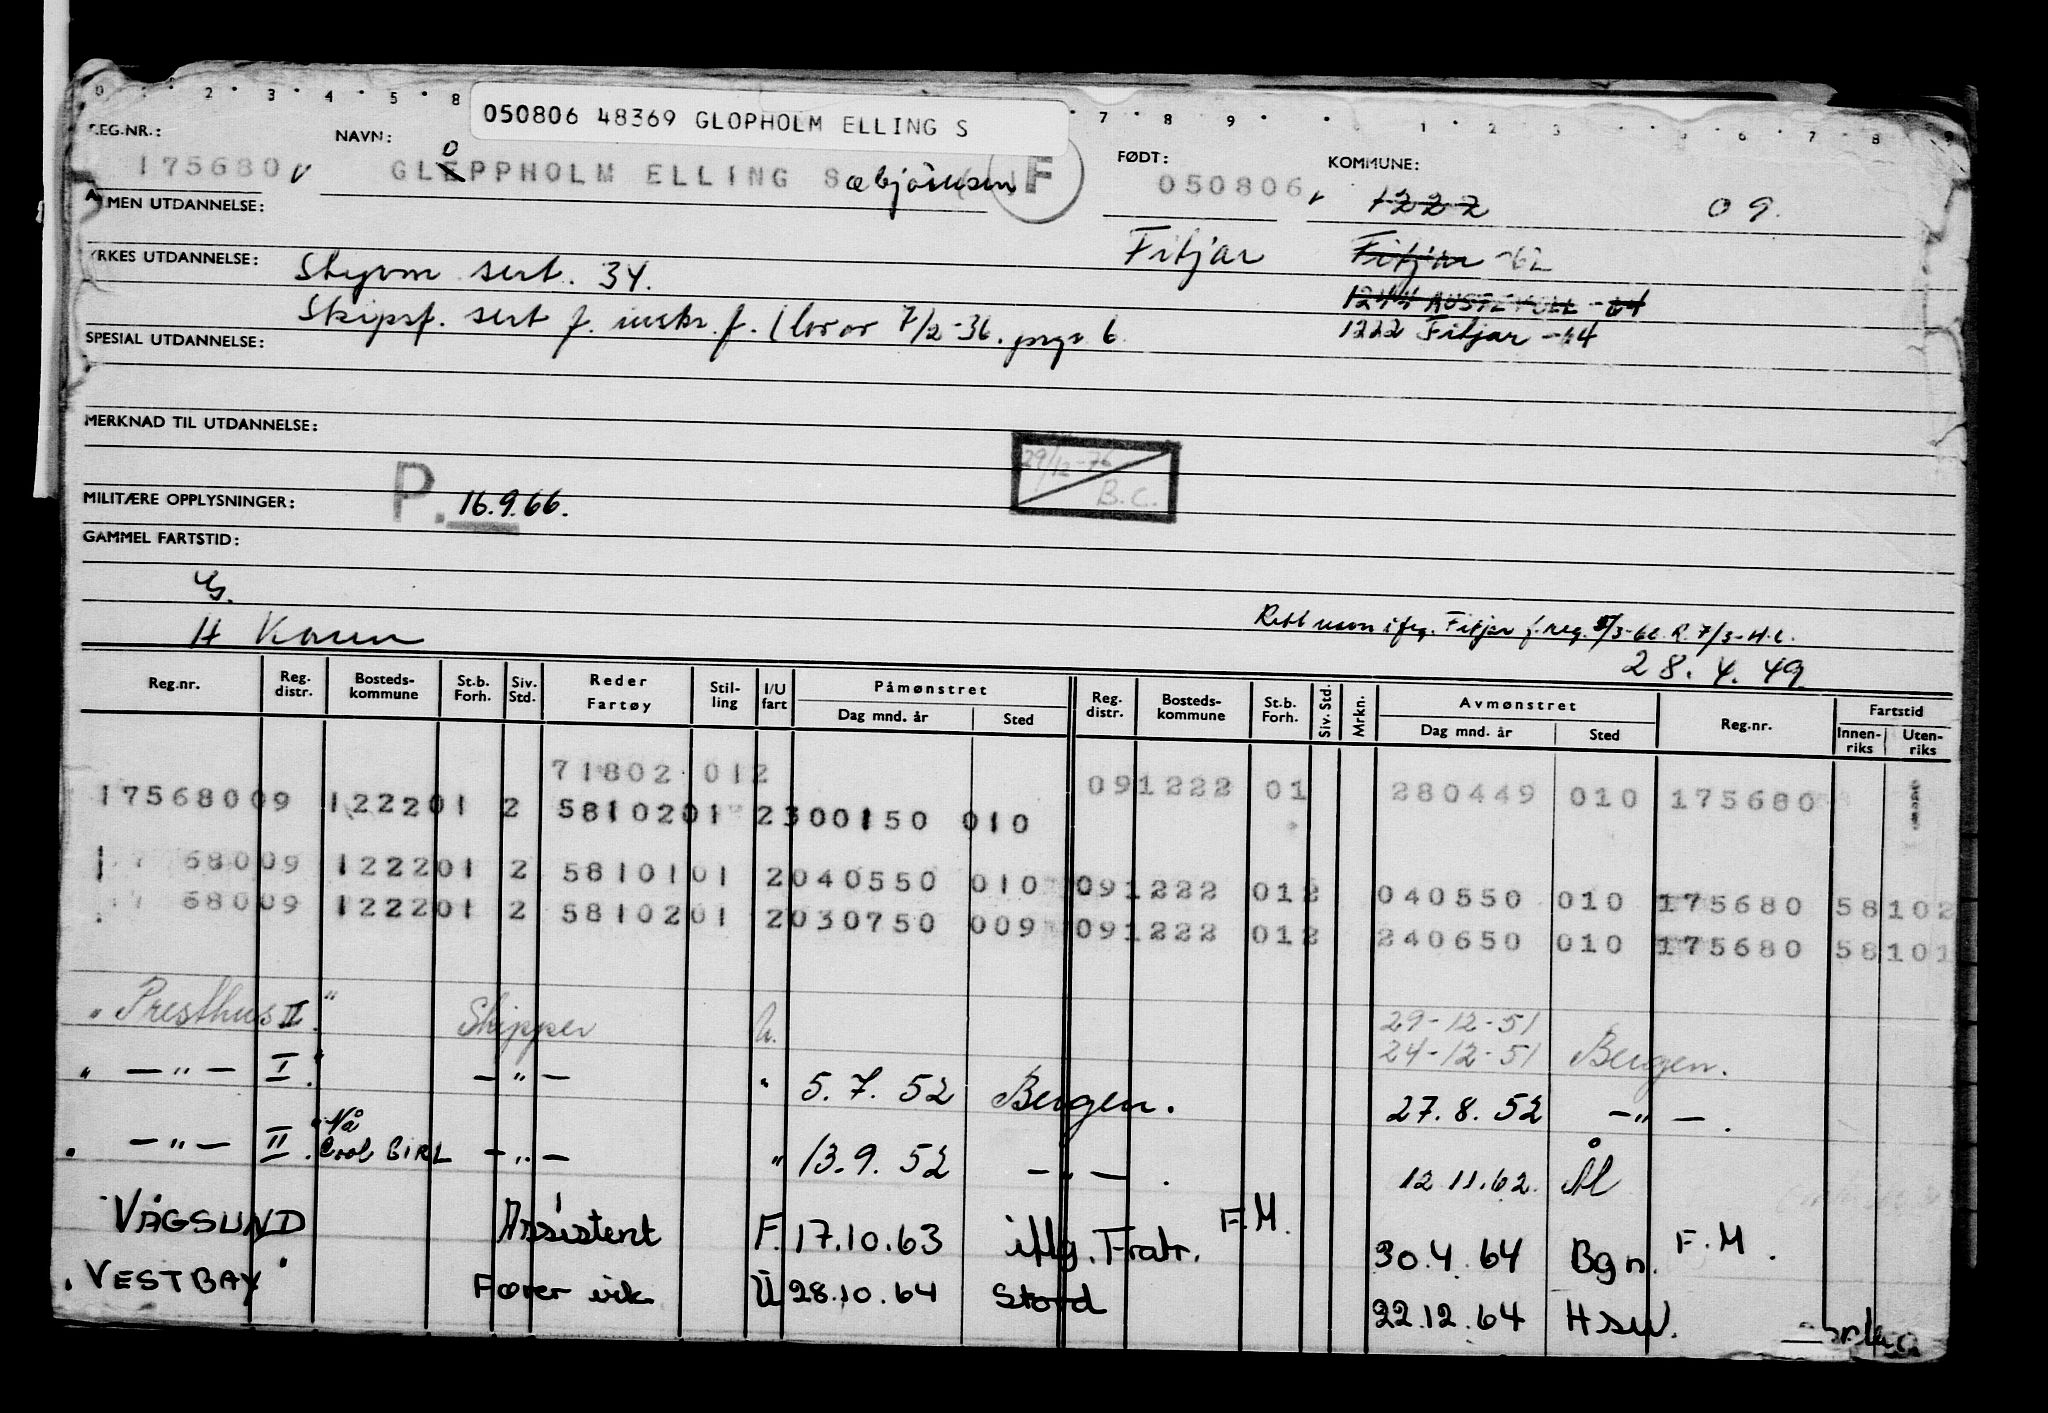 0 · 2 · 3 · 4 · 5 · 8 7 · 8 · 9 · 1 · 2 3 6 · 7 · 8 9
050806 48369 GLOPHOLM ELLING S
REG.NR.: NAVN: FØDT: KOMMUNE:
175680 v GLEPPHOLM ELLING Sæbjörnsen F 050806 v 1222 09.
O
ALMEN UTDANNELSE:
Fitjar Fitjar -62
YRKES UTDANNELSE: Styrm sert. 34.
1244 AUSTEVOLL - 64
Skipsf. sert f. 7/2-36. 6
1222 Fitjar -64
SPESIAL UTDANNELSE:
MERKNAD TIL UTDANNELSE:
29/12-76 B.C.
MILITÆRE OPPLYSNINGER: P. 16.9.66.
GAMMEL FARTSTID:
H
Rett navn ifg. Fitjar f.reg. 5/3-62. R. 7/3-H.C.
28.4.49
Reg.nr. Reg. distr. Bosteds-kommune St.b. Forh. Siv. Std. Reder Fartøy Stil-ling I/U fart Påmønstret Dag mnd. år Sted Reg. distr. Bosteds-kommune St.b. Forh. Siv. Std. Mrkn. Avmønstret Dag mnd. år Sted Reg.nr. Fartstid Innen-riks Uten-riks
71802 012 091222 01 280449 010 175680
17568009 122201 2 5810201 2300150 010
1 7 68009 122201 2 5810101 2040550 010 091222 012 040550 010 175680 58102
7 68009 122201 2 5810201 2030750 009 091222 012 240650 010 175680 58101
"Presthus II." Skipper U. 29-12-51
24-12-51 Bergen.
" — " — I." — " — " 5.7.52 Bergen. 27.8.52 — " — .
" — " — II." Nå Cool GIRL — " — " 13.9.52 — " — . 12 11.62. Ål
"VÅGSUND Assistent F. 17.10.63 iflg. Fratr. F.M. 30.4.64 Bgn. F.M.
"VESTBAY" Fører vik U 28.10.64 Stord 22.12.64 Hsw.